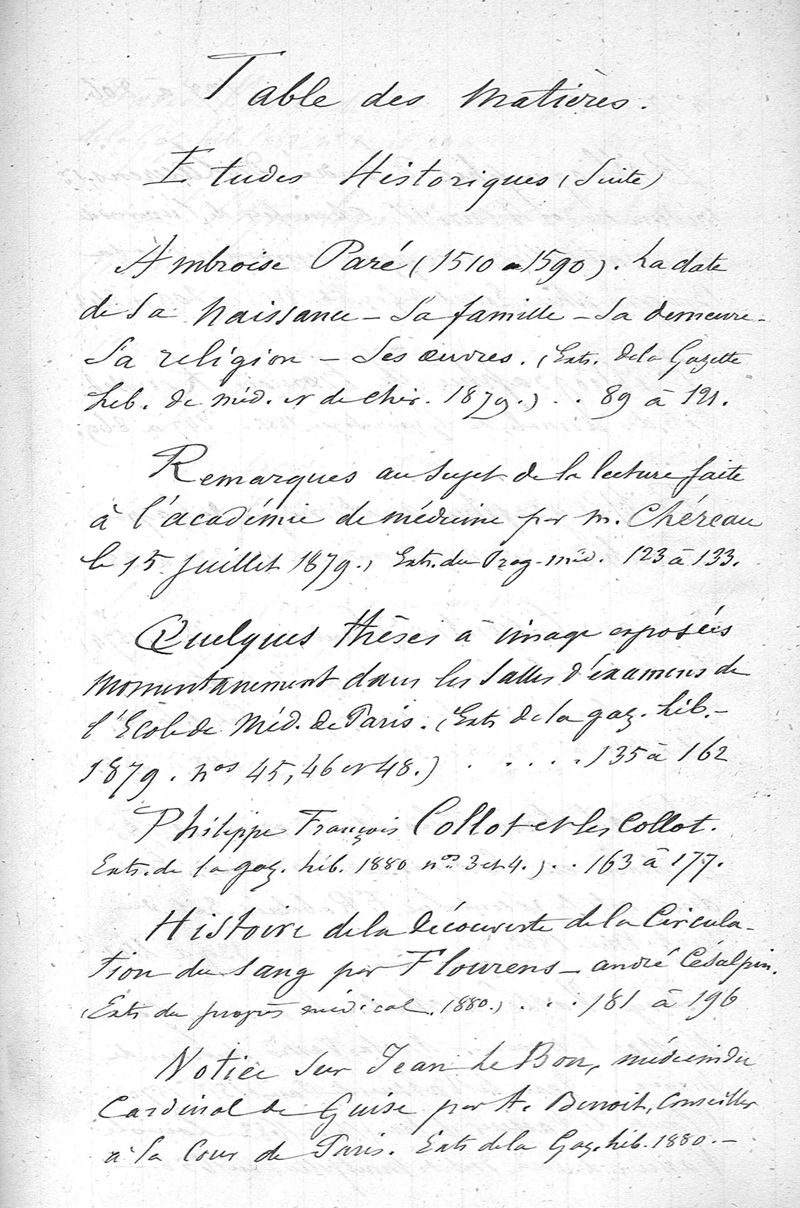 Table des Matières.
Etudes Historiques (Suite)
Ambroise Paré (1510 - 1590). La date
de Sa Naissance - Sa famille - Sa demeure -
Sa religion - Ses œuvres. (Extr. de la Gazette
heb. de méd. et de chir. 1879.) . . 89 à 121.
Remarques au sujet de la lecture faite
à l'académie de médecine par M. Chéreau
le 15 juillet 1879., Extr. du Prog. méd. 123 à 133.
Quelques thèses à image exposées
Momentanement dans les Salles d'examens de
l'École de Méd. de Paris. (Extr. de la gaz. heb. -
1879. nos 45, 46 et 48.) . . . . . 135 à 162
Philippe François Collot et les Collot.
Extr. de la gaz. heb. 1880 nos 3 et 4.) . . 163 à 177.
Histoire de la découverte de la Circula-
tion du Sang par Flourens - André Césalpin.
(Extr. du progrès médical. 1880.) . . . 181 à 196
Notice sur Jean Le Bon, médecin du
Cardinal de Guise par A. Benoit, Conseiller
à la Cour de Paris. Extr. de la Gaz. heb. 1880. -